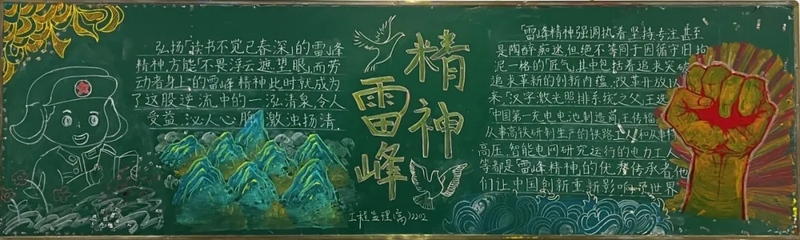 弘扬"读书不觉已春深"的雷峰
精神方能"不畏浮云遮望眼",而劳
动者身上"的雷峰精神此时就成为
了这股逆流中的一泓清泉,令人
受益,沁人心脾,激浊扬清.
雷峰
精神
工程监理(高)2202
雷峰精神强调执着坚持、专注甚至
是陶醉、痴迷,但绝不等同于因循守旧、拘
泥一格的"匠气",其中包括着追求突破、
追求革新的创新内蕴,改革开放以
来,"汉字激光照排系统之父"王选、
"中国第一、充电电池制造商"王传福、
从事高铁研制生产的铁路工人和从事特
高压、智能电网研究运行的电力工人
等都是雷峰精神的优秀传承者,他
们让中国创新重新影响了世界